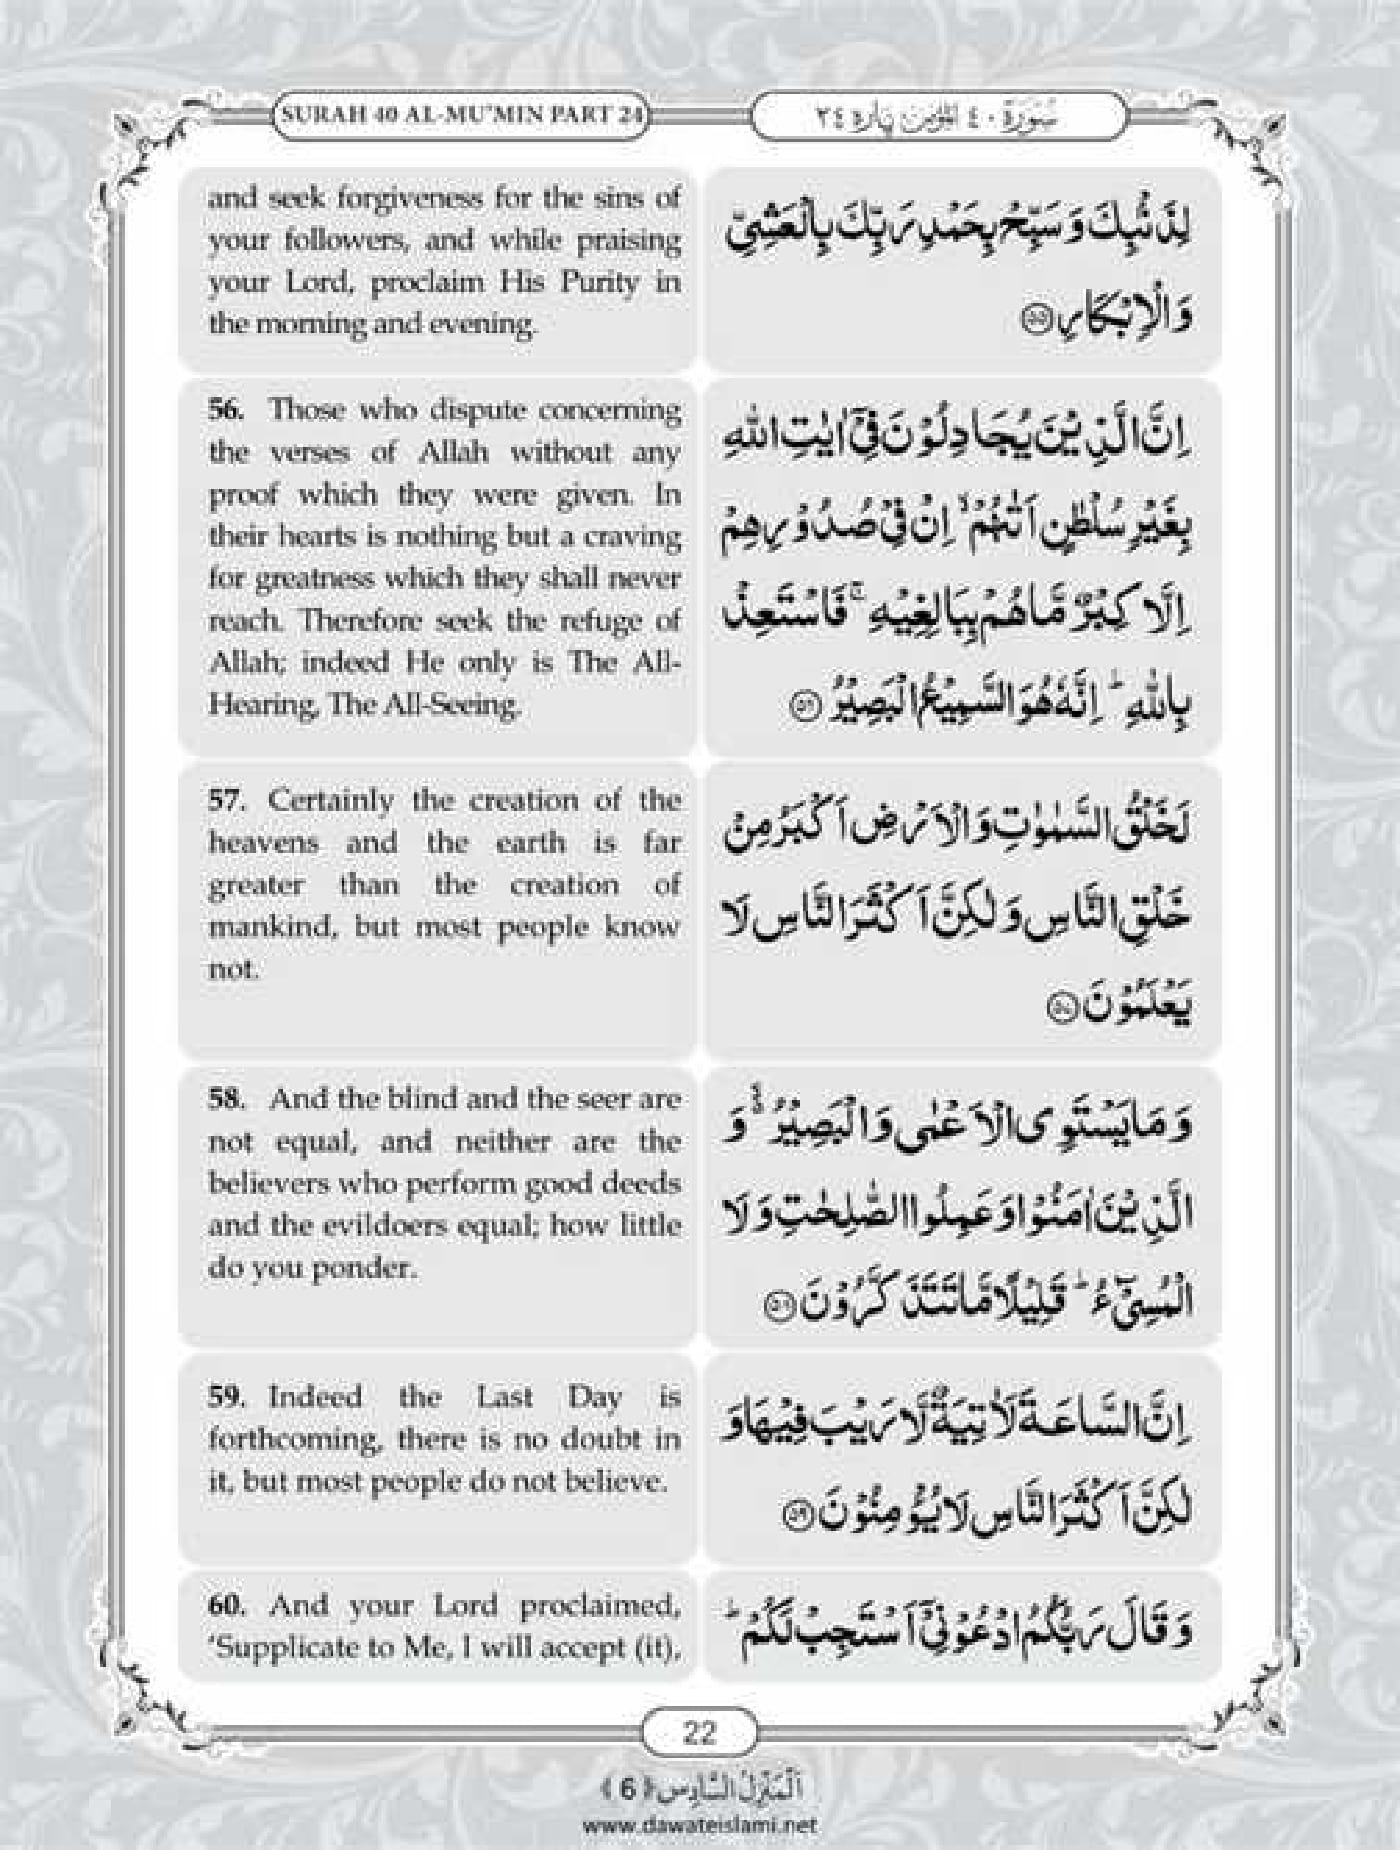 SURAH 40 AL-MU'MIN PART 24
سُوْرَةُ ٤٠ اَلْمُؤْمِن پاره ٢٤
and seek forgiveness for the sins of
your followers, and while praising
your Lord, proclaim His Purity in
the morning and evening.
لِذَنْۢبِكَ وَ سَبِّحْ بِحَمْدِ رَبِّكَ بِالْعَشِیِّ
وَ الْاِبْكَارِ ﴿۵۵﴾
56. Those who dispute concerning
the verses of Allah without any
proof which they were given. In
their hearts is nothing but a craving
for greatness which they shall never
reach. Therefore seek the refuge of
Allah; indeed He only is The All-
Hearing, The All-Seeing.
اِنَّ الَّذِیْنَ یُجَادِلُوْنَ فِیْۤ اٰیٰتِ اللّٰهِ
بِغَیْرِ سُلْطٰنٍ اَتٰىهُمْ ۙ اِنْ فِیْ صُدُوْرِهِمْ
اِلَّا كِبْرٌ مَّا هُمْ بِبَالِغِیْهِ ۚ فَاسْتَعِذْ
بِاللّٰهِ ؕ اِنَّهٗ هُوَ السَّمِیْعُ الْبَصِیْرُ ﴿۵۶﴾
57. Certainly the creation of the
heavens and the earth is far
greater than the creation of
mankind, but most people know
not.
لَخَلْقُ السَّمٰوٰتِ وَ الْاَرْضِ اَكْبَرُ مِنْ
خَلْقِ النَّاسِ وَ لٰكِنَّ اَكْثَرَ النَّاسِ لَا
یَعْلَمُوْنَ ﴿۵۷﴾
58. And the blind and the seer are
not equal, and neither are the
believers who perform good deeds
and the evildoers equal; how little
do you ponder.
وَ مَا یَسْتَوِی الْاَعْمٰى وَ الْبَصِیْرُ ۙ۬ وَ
الَّذِیْنَ اٰمَنُوْا وَ عَمِلُوا الصّٰلِحٰتِ وَ لَا
الْمُسِیْٓءُ ؕ قَلِیْلًا مَّا تَتَذَكَّرُوْنَ ﴿۵۸﴾
59. Indeed the Last Day is
forthcoming, there is no doubt in
it, but most people do not believe.
اِنَّ السَّاعَةَ لَاٰتِیَةٌ لَّا رَیْبَ فِیْهَا وَ
لٰكِنَّ اَكْثَرَ النَّاسِ لَا یُؤْمِنُوْنَ ﴿۵۹﴾
60. And your Lord proclaimed,
‘Supplicate to Me, I will accept (it),
وَ قَالَ رَبُّكُمُ ادْعُوْنِیْۤ اَسْتَجِبْ لَكُمْ ؕ
22
اَلْمَنْزِلُ السَّادِس ﴿6﴾
www.dawateislami.net